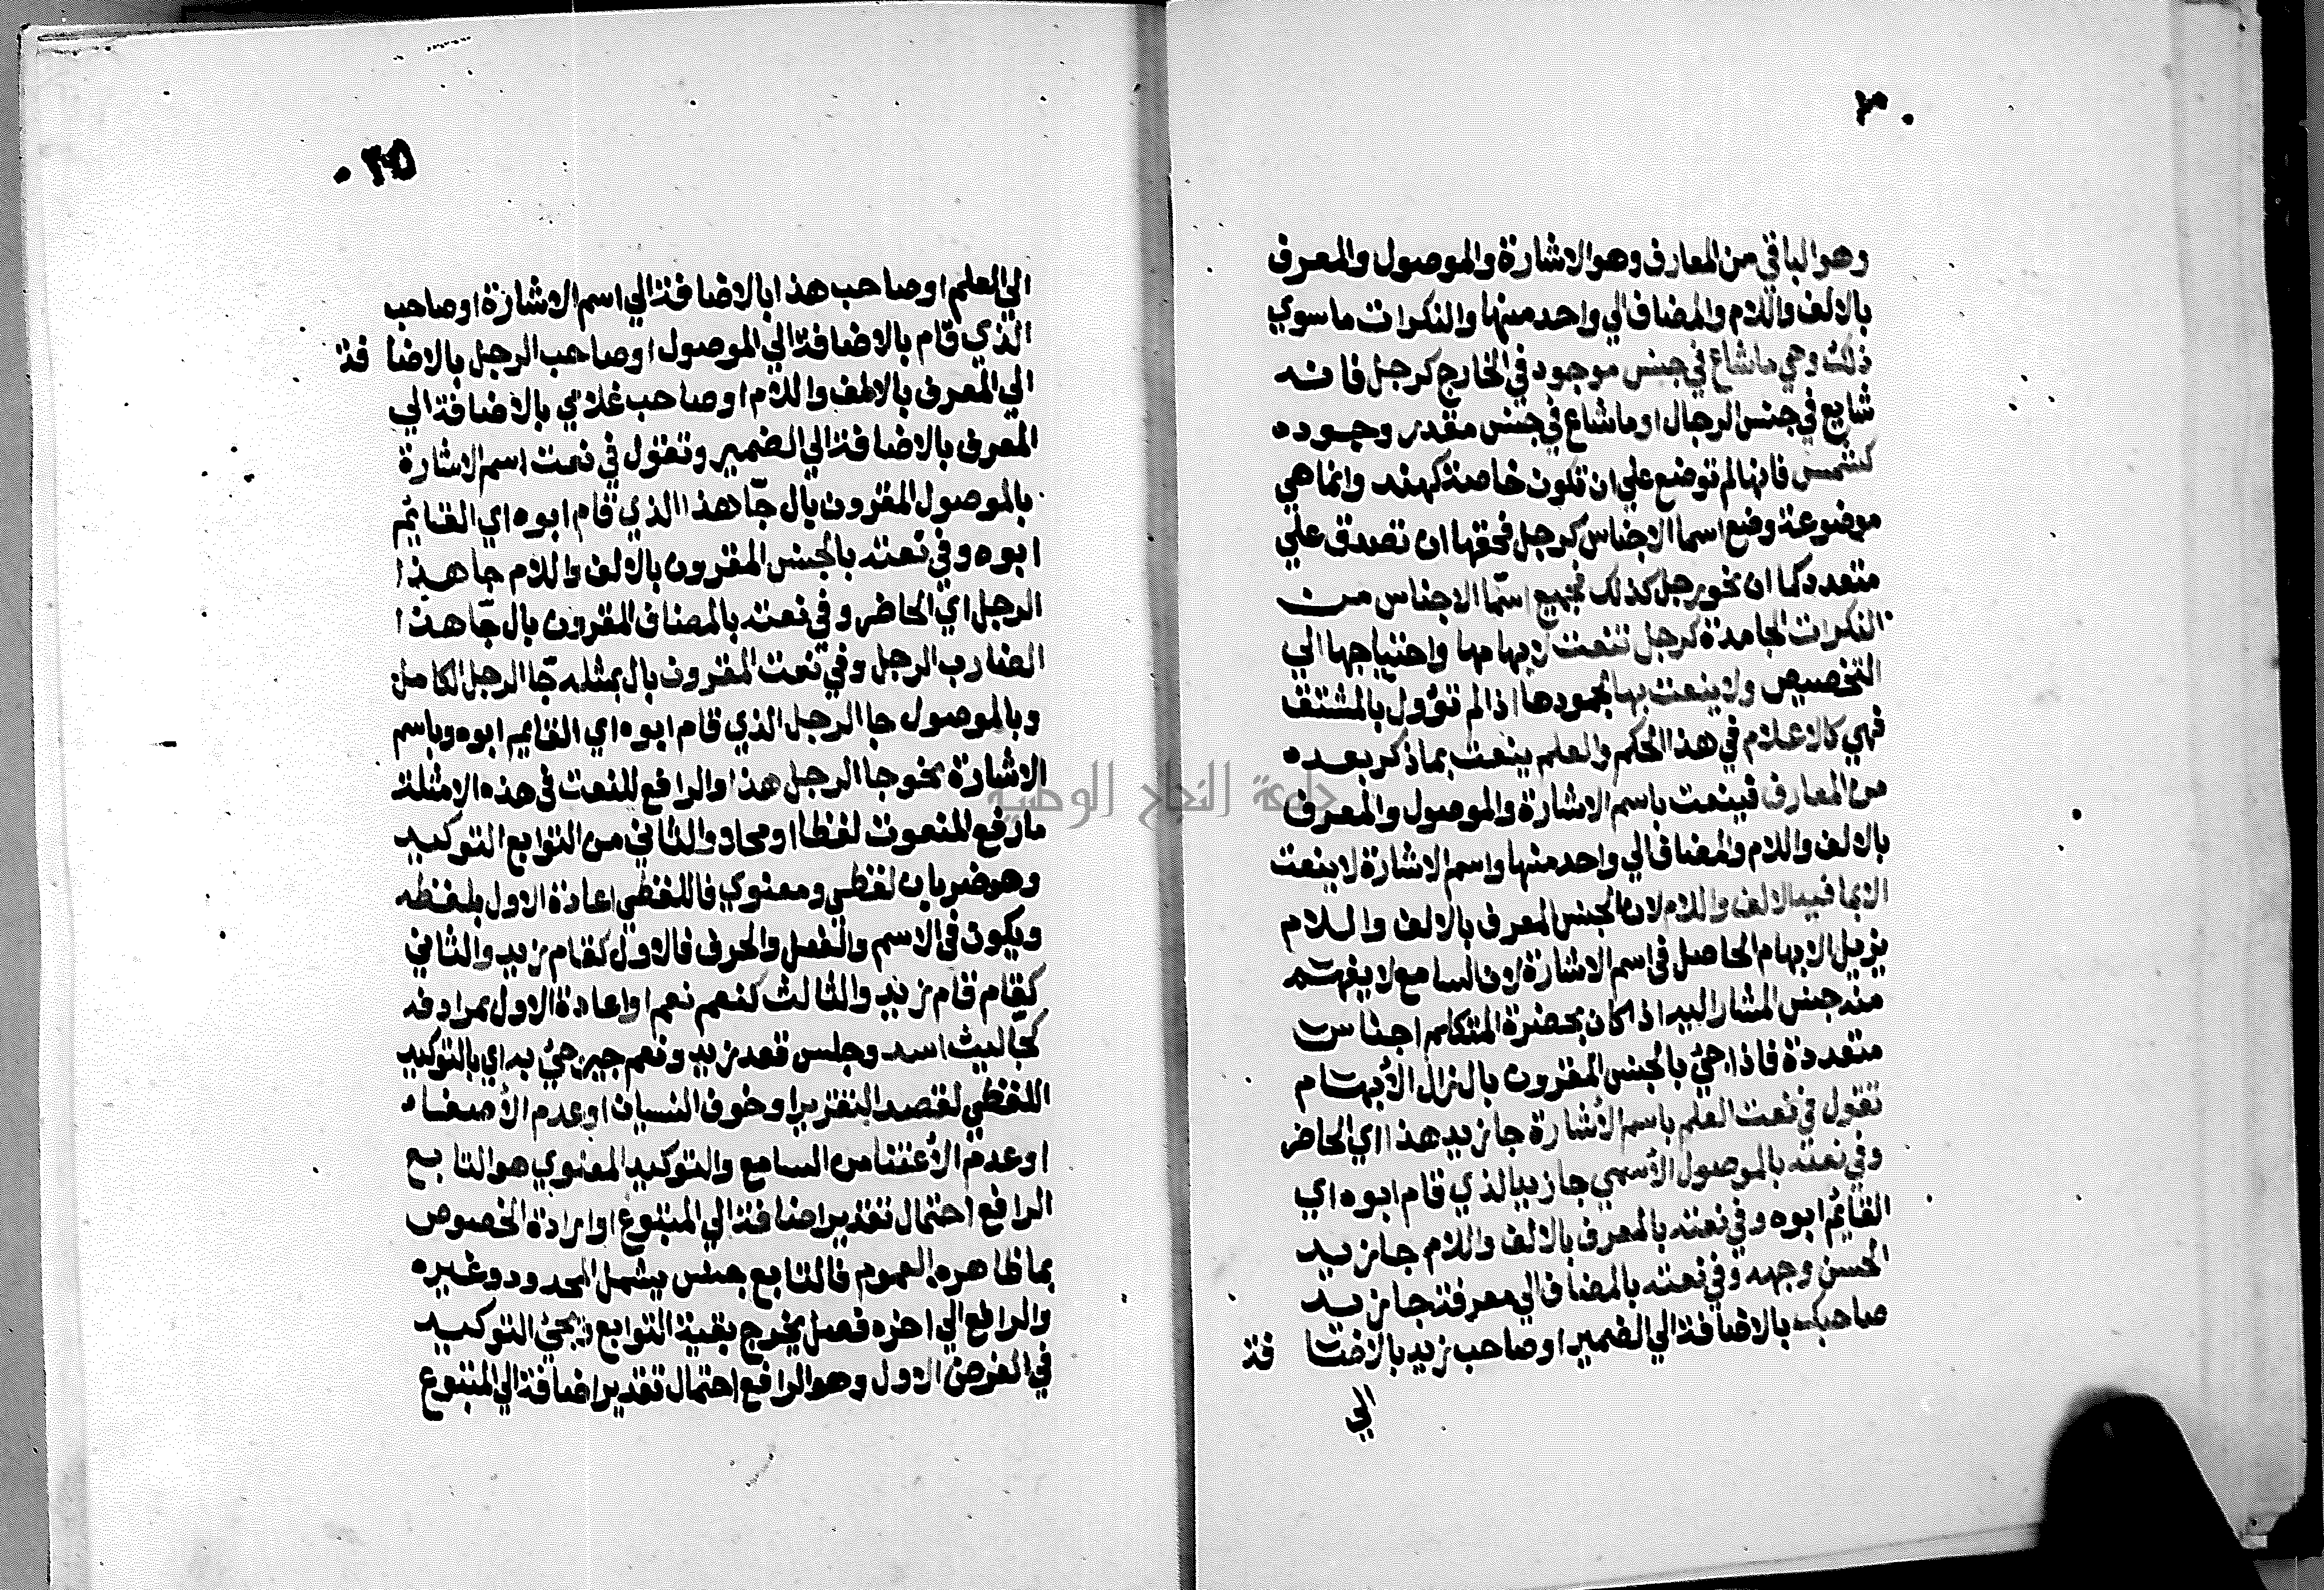 وهو الباقي من المعارف وهو الاشارة والموصول والمعرف
بالالف واللام والمضاف الي واحد منها والنكرات ما سوي
ذلك وهي ما شاع في جنس موجود في الخارج كرجل فانه
شايع في جنس الرجال او ما شاع في جنس مقدر وجوده
كشمس فانها لم توضع علي ان تكون خاصة كهند وانما هي
موضوعة وضع اسما الاجناس كرجل فحقها ان تصدق علي
متعدد كما ان نحو رجل كذلك فجميع اسما الاجناس من
النكرات الجامدة كرجل تنعت لابهامها واحتياجها الي
التخصيص ولا ينعت بها لجمودها اذا لم تؤول بالمشتق
فهي كالاعلام في هذا الحكم والعلم ينعت بما ذكر بعده
من المعارف فينعت باسم الاشارة والموصول والمعرف
بالالف واللام والمضاف الي واحد منها واسم الاشارة لا ينعت
الا بما فيه الالف واللام لان الجنس المعرف بالالف واللام
يزيل الابهام الحاصل في اسم الاشارة لان السامع لا يفهم
منه جنس المشار اليه اذا كان بحضرة المتكلم اجناس
متعددة فاذا جئ بالجنس المقرون بال زال الابهام
تقول في نعت العلم باسم الاشارة جا زيد هذا اي الحاضر
وفي نعته بالموصول الاسمي جا زيد الذي قام ابوه اي
القايم ابوه وفي نعته بالمعرف بالالف واللام جا زيد
الحسن وجهه وفي نعته بالمضاف الي معرفة جا زيد
صاحبك بالاضافة الي الضمير او صاحب زيد بالاضا فة
الي
٣٥
الي العلم او صاحب هذا بالاضافة الي اسم الاشارة او صاحب
الذي قام بالاضافة الي الموصول او صاحب الرجل بالاضا فة
الي المعرف بالالف واللام او صاحب غلامي بالاضافة الي
المعرف بالاضافة الي الضمير وتقول في نعت اسم الاشارة
بالموصول المقرون بال جا هذا الذي قام ابوه اي القايم
ابوه وفي نعته بالجنس المقرون بالالف واللام جا هذا
الرجل اي الحاضر وفي نعته بالمضاف للمقرون بال جا هذا
الضارب الرجل وفي نعت المقرون بال بمثله جا الرجل الكامل
وبالموصول جا الرجل الذي قام ابوه اي القايم ابوه وباسم
الاشارة نحو جا الرجل هذا والرافع للنعت في هذه الامثلة
ما رفع المنعوت لفظا او محلا والثاني من التوابع التوكيد
وهو ضربان لفظي ومعنوي فاللفظي اعادة الاول بلفظه
ويكون في الاسم والفعل والحرف فالاول كقام زيد والثاني
كقام قام زيد والثالث كنعم نعم او اعادة الاول بمرادفه
كجا ليث اسد وجلس قعد زيد ونعم جير جئ به اي بالتوكيد
اللفظي لقصد التقرير او خوف النسيان او عدم الاصغاء
او عدم الاعتنا من السامع والتوكيد المعنوي هو التابع
الرافع احتمال تقدير اضافة الي المتبوع او ارادة الخصوص
بما ظاهره العموم فالتابع جنس يشمل المحدود وغيره
والرافع الي اخره فصل يخرج بقية التوابع ويجئ التوكيد
في الغرض الاول وهو الرافع احتمال تقدير اضافة الي المتبوع
جامعة النجاح الوطنية